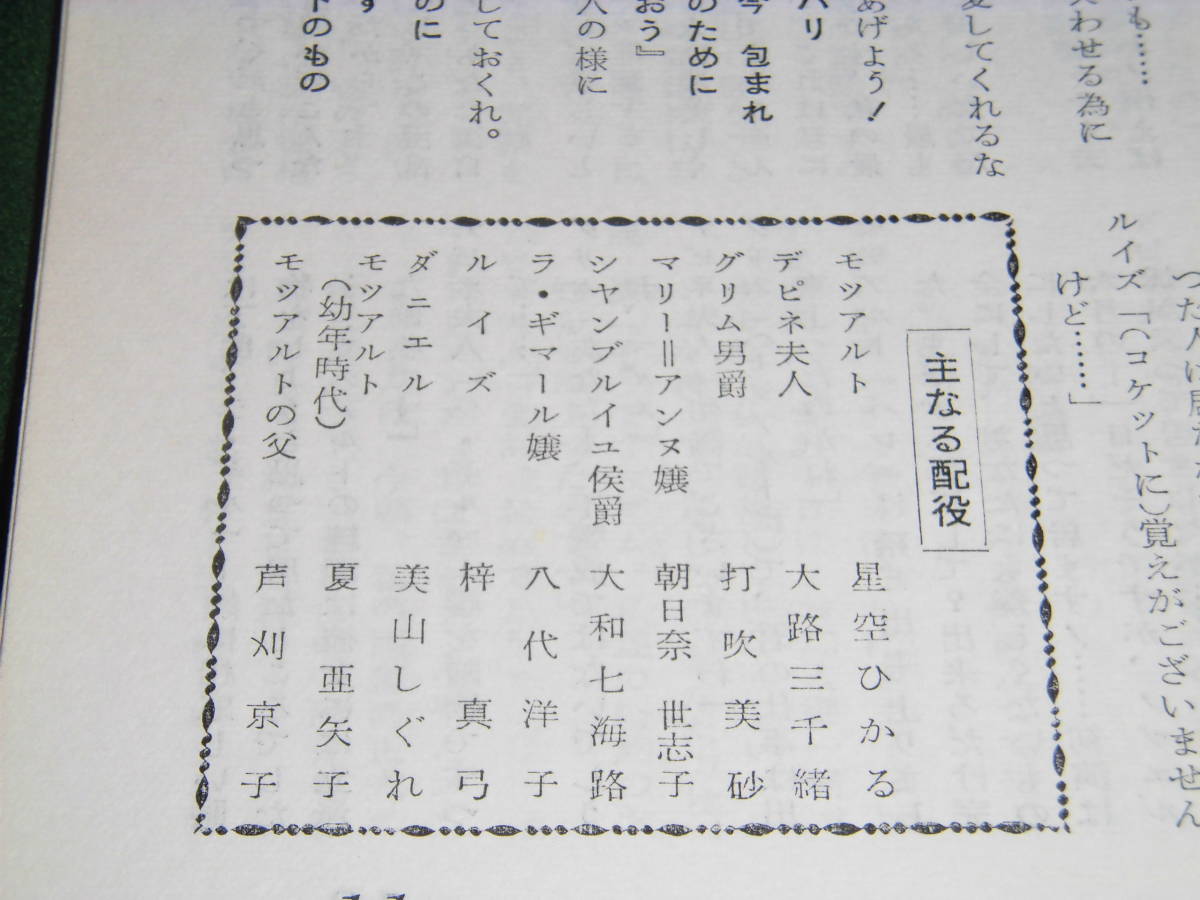 も……
わせる為に
愛してくれるな
あげよう！
ハリ
今 包まれ
のために
おう』
人の様に
しておくれ。
のに
す
トのもの
ルイズ「(コケットに)覚えがございません
けど……」
主なる配役
モツアルト 星空ひかる
デピネ夫人 大路三千緒
グリム男爵 打吹美砂
マリー＝アンヌ嬢 朝日奈世志子
シヤンブルイユ侯爵 大和七海路
ラ・ギマール嬢 八代洋子
ルイズ 梓真弓
ダニエル 美山しぐれ
モツアルト
(幼年時代) 夏亜矢子
モツアルトの父 芦刈京子